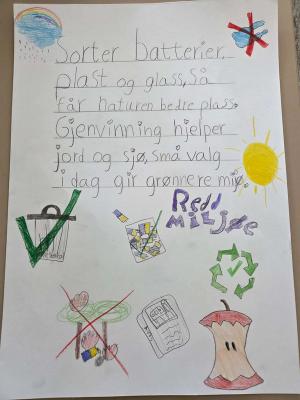 Sorter batterier,
plast og glass, så
får naturen bedre plass.
Gjenvinning hjelper
jord og sjø, små valg
i dag gir grønnere miø.
Redd
MILJØe